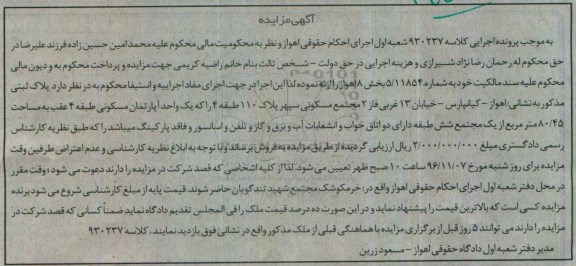 آگهی مزایده
به موجب پرونده اجرایی کلاسه ۹۳۰۲۳۷ شعبه اول اجرای احکام حقوقی اهواز و نظر به محکومیت مالی محکوم علیه محمد امین حسین زاده فرزند علیرضا در
حق محکوم له رحمان رضا نژاد شیرازی و هزینه اجرایی در حق دولت – شخص ثالث بنام خانم راضیه کریمی جهت مزایده و پرداخت محکوم به و دیون مالی
محکوم علیه سند مالکیت خود به شماره ۵/۱۱۸۵۴ بخش ۸ اهواز را ارائه نموده لذا این اجرا در جهت اجرای مفاد اجراییه و استیفا محکوم به در نظر دارد پلاک ثبتی
مذکور به نشانی: اهواز – کیانپارس – خیابان ۱۳ غربی فاز ۲ مجتمع مسکونی سپهر پلاک ۱۱۰ طبقه ۴ را که یک واحد آپارتمان مسکونی طبقه ۴ عقب به مساحت
۸۰/۴۵ متر مربع از یک مجتمع شش طبقه دارای دو اتاق خواب و انشعابات آب و برق و گاز و تلفن و آسانسور و فاقد پارکینگ میباشد را که طبق نظریه کارشناس
رسمی دادگستری مبلغ ۲/۰۰۰/۰۰۰/۰۰۰ ریال ارزیابی گردیده از طریق مزایده به فروش برساند و با توجه به ابلاغ نظریه کارشناسی و عدم اعتراض طرفین وقت
مزایده برای روز شنبه مورخ ۹۶/۱۱/۰۷ ساعت ۱۰ صبح ظهر تعیین می شود. لذا از کلیه اشخاصی که قصد شرکت در مزایده را دارند دعوت می شود؛ وقت مقرر
در محل دفتر شعبه اول اجرای احکام حقوقی اهواز واقع در: خرمکوشک مجتمع شهید تندگویان حاضر شوند. قیمت پایه از مبلغ کارشناسی شروع می شود برنده
مزایده کسی است که بالاترین قیمت را پیشنهاد نماید و در این صورت ده درصد قیمت ملک را فی المجلس تقدیم دادگاه نماید ضمناً کسانی که قصد شرکت در
مزایده را دارند می توانند ۵ روز قبل از برگزاری مزایده با هماهنگی قبلی از ملک مذکور واقع در نشانی فوق بازدید نمایند. کلاسه ۹۳۰۲۳۷
مدیر دفتر شعبه اول دادگاه حقوقی اهواز – مسعود زرین